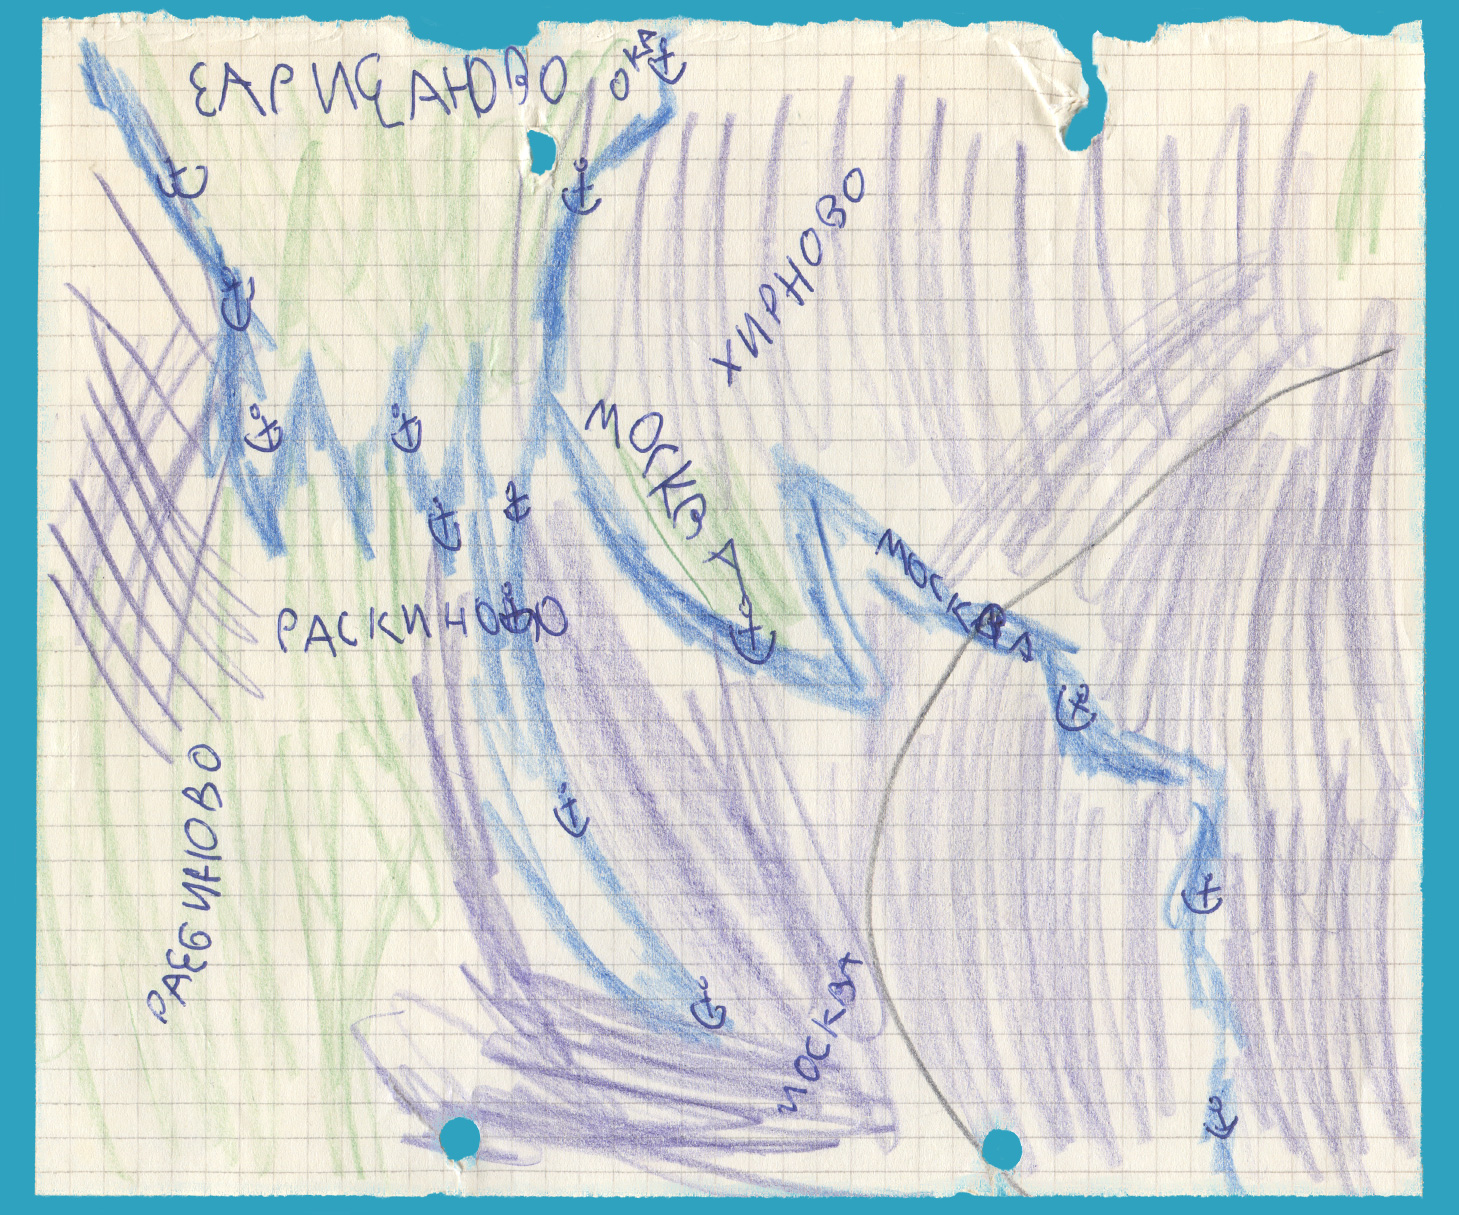 ЕАРИЦАНОВО
ОКА
ХИРНОВО
МОСКВА
МОСКВА
РАСКИНОВО
РАЕБИНОВО
МОСКВА